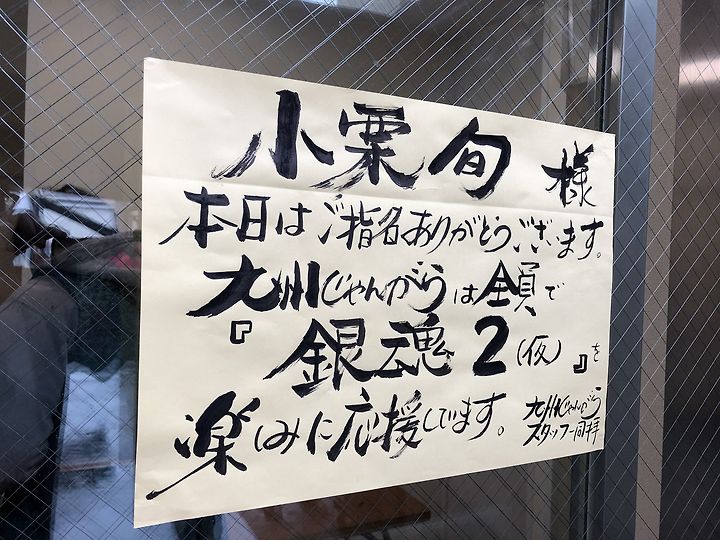 小栗旬 様
本日はご指名ありがとうございます。
九州じゃんがらは全員で
『銀魂2(仮)』を
楽しみに応援しています。
九州じゃんがら
スタッフ一同拝